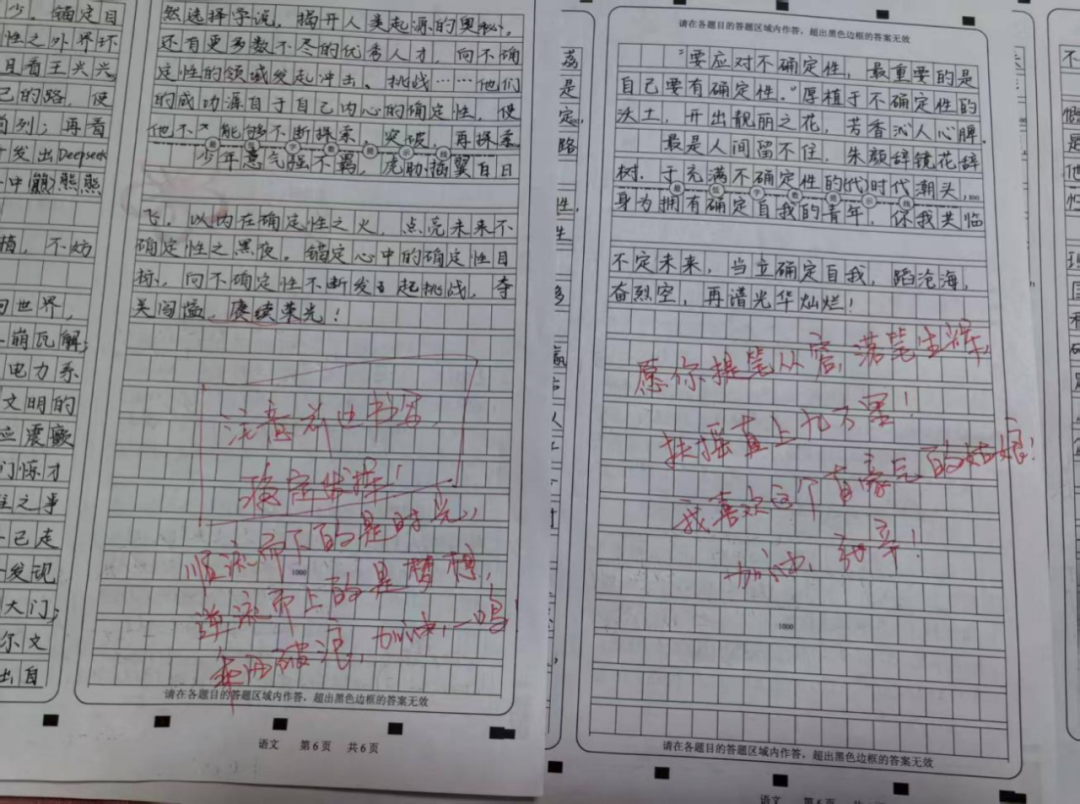 少。锚定目
性之外界环
且看王兴兴
己的路，使
前列；再看
发出Deepseek
中崩。熊熊
植，不妨
世界，
崩瓦解；
电力系
文明的
应震颤
门怀才
之事
已走
发现
大门；
尔文
出自
然选择学说，揭开人类起源的奥秘。
还有更多数不尽的优秀人才，向不确
定性的领域发起冲击、挑战……他们
的成功源自于自己内心的确定性，使
他不能够不断探索、突破、再探索。
少年意气强不羁，虎胁插翼白日
飞。以内在确定性之火，点亮未来不
确定性之黑夜。锚定心中的确定性目
标，向不确定性不断发起挑战，夺
关闯隘，赓续荣光！
注意书写
稳定发挥！
顺流而下的是时光，
逆流而上的是梦想，
乘风破浪，加油，一鸣
1000
请在各题目的答题区域内作答，超出黑色边框的答案无效
语文 第6页 共6页
请在各题目的答题区域内作答，超出黑色边框的答案无效
“要应对不确定性，最重要的是
自己要有确定性。”厚植于不确定性的
沃土，开出靓丽之花，芳香沁人心脾。
最是人间留不住，朱颜辞镜花辞
树。于充满不确定性的时代潮头，
身为拥有确定自我的青年，你我共临
不定未来，当立确定自我，蹈沧海，
奋烈空，再谱光华灿烂！
愿你提笔从容，落笔生辉，
扶摇直上九万里！
我喜欢这个有豪气的姑娘！
加油
1000
请在各题目的答题区域内作答，超出黑色边框的答案无效
语文 第6页